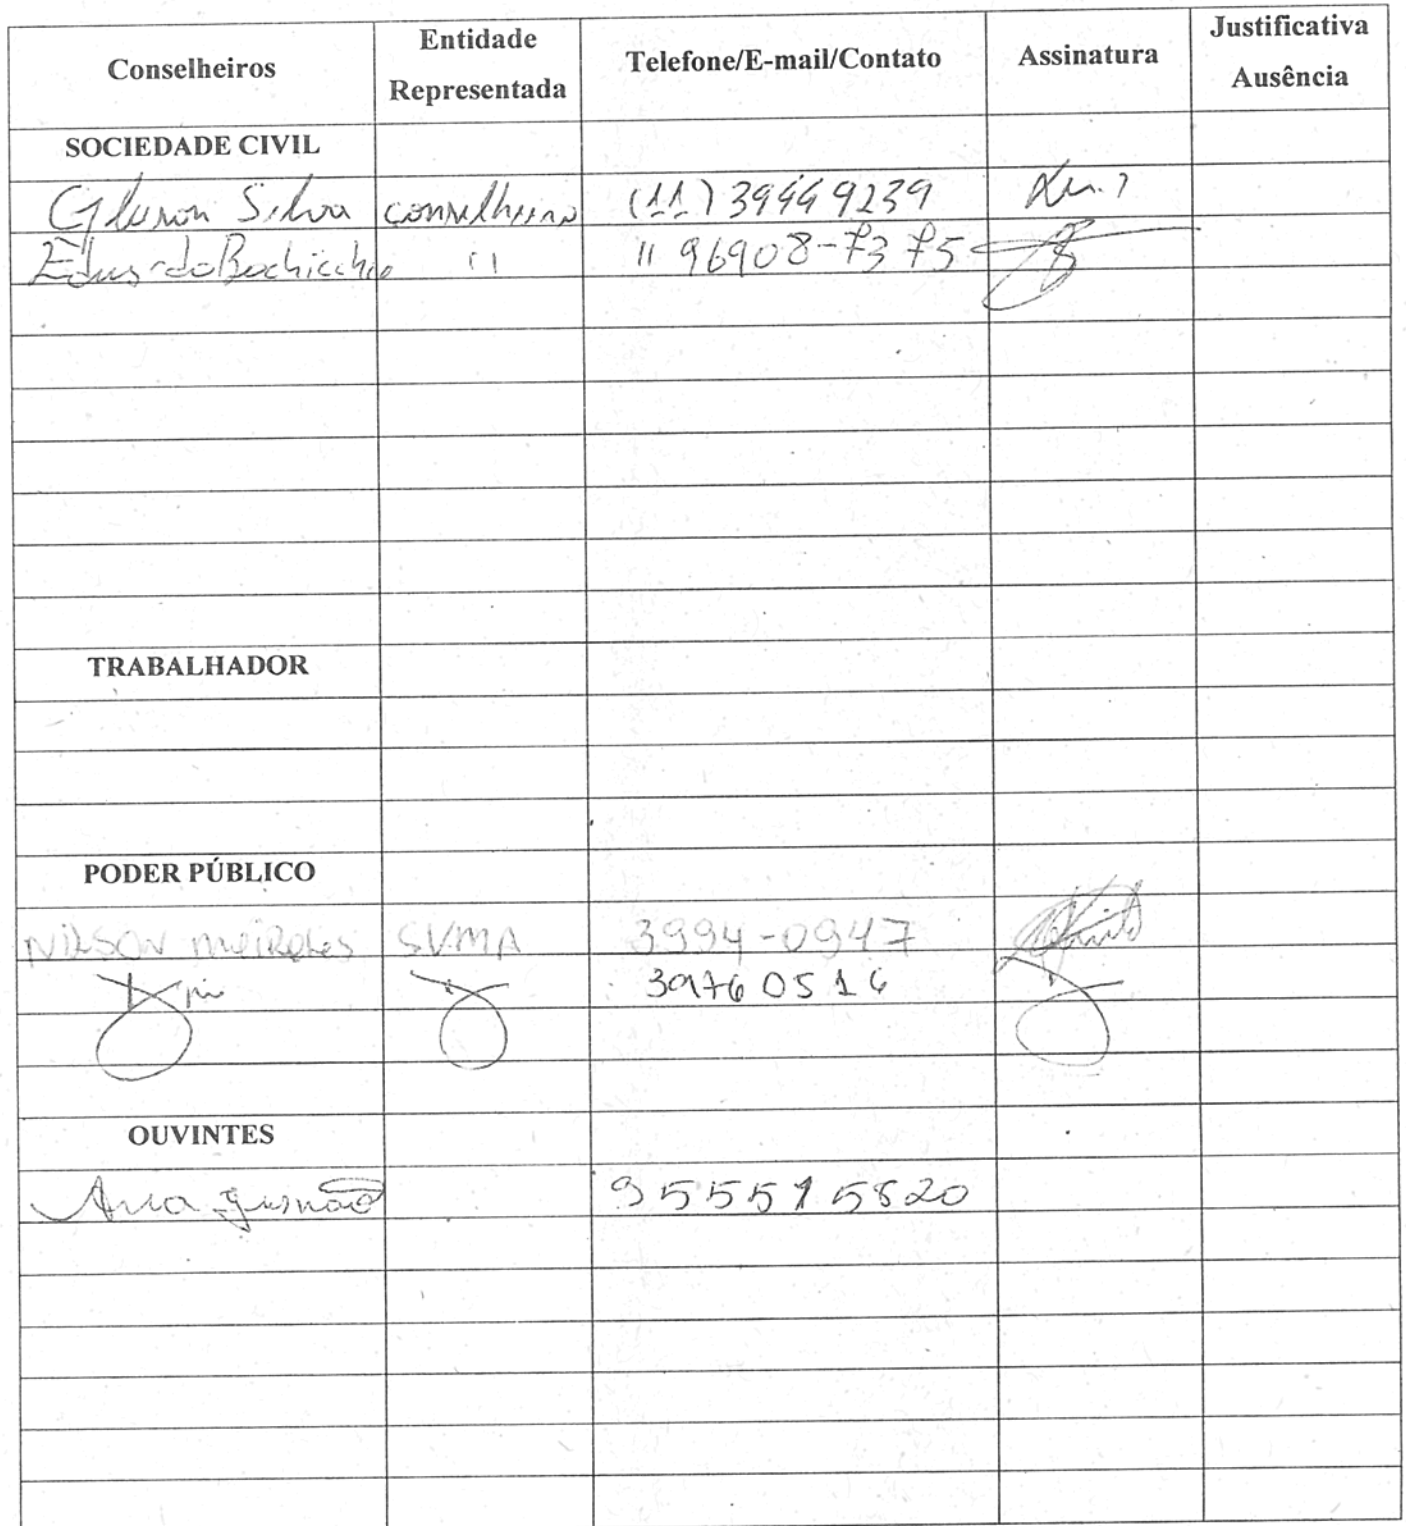 Conselheiros Entidade Representada Telefone/E-mail/Contato Assinatura Justificativa Ausência
SOCIEDADE CIVIL
Silva conselheiro (11) 39449239
Eduardo Bochicchio 11 11 96908-7375
TRABALHADOR
PODER PÚBLICO
NILSON meireles SVMA 3994-0947
39760516
OUVINTES
Ana Gusmão 955515820